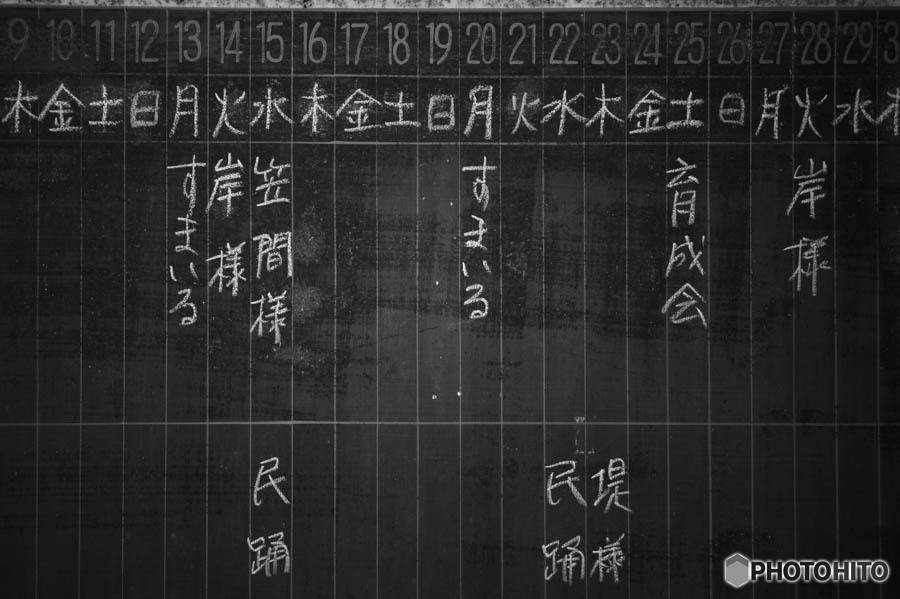 9 10 11 12 13 14 15 16 17 18 19 20 21 22 23 24 25 26 27 28 29
木 金 土 日 月 火 水 木 金 土 日 月 火 水 木 金 土 日 月 火 水 木
すまいる
岸様
笠間様
すまいる
育成会
岸様
民踊
民踊
堤様
PHOTOHITO